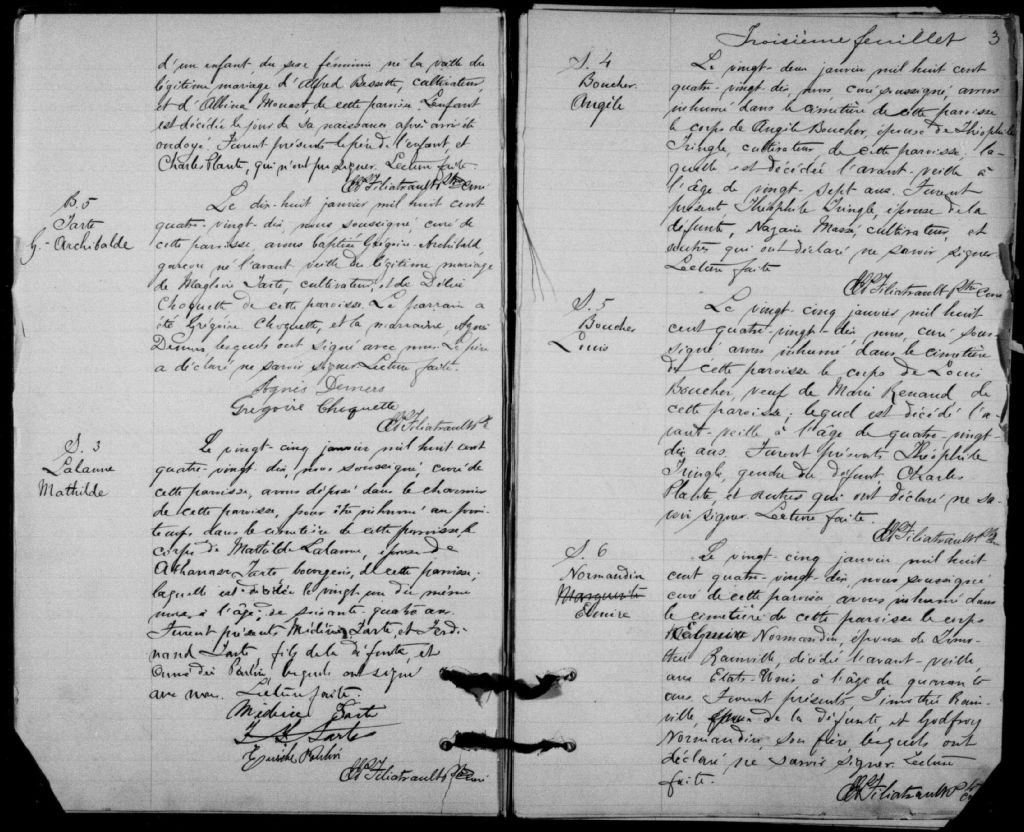 d'un enfant du sexe féminin né la veille du
légitime mariage d'Alfred Bessette, cultivateur,
et d'Albina Monast de cette paroisse. L'enfant
est décédé le jour de sa naissance après avoir été
ondoyé. Furent présents le père de l'enfant, et
Charles Plante, qui n'ont pu signer. Lecture faite
Filiatrault Ptre Curé
B. 5
Tarte
G.- Archibalde
Le dix-huit janvier mil huit cent
quatre-vingt-dix, nous soussigné, curé de
cette paroisse, avons baptisé Grégoire-Archibald,
garçon né l'avant-veille du légitime mariage
de Magloire Tarte, cultivateur, et de
Choquette de cette paroisse. Le parrain a
été Grégoire Choquette, et la marraine, Agnès
Demers, lesquels ont signé avec nous. Le père
a déclaré ne savoir signer. Lecture faite.
Agnès Demers
Grégoire Choquette
Filiatrault Pt
S. 3
Lalanne
Mathilde
Le vingt-cinq janvier mil huit cent
quatre-vingt-dix, nous soussigné, curé de
cette paroisse, avons déposé dans le charnier
de cette paroisse, pour être inhumé au prin-
temps dans le cimetière de cette paroisse, le
corps de Mathilde Lalanne, épouse de
Athanase Tarte bourgeois, de cette paroisse;
laquelle est décédée le vingt un du même
mois, à l'âge de soixante-quatre ans.
Furent présents Médéric Tarte, et Ferdi-
nand Tarte, fils de la défunte, et
lesquels ont signé
avec nous. Lecture faite.
Médéric Tarte
Tarte
Filiatrault Ptre Curé
Troisième feuillet 3
S. 4
Boucher
Angèle
Le vingt-deux janvier mil huit cent
quatre-vingt-dix, nous curé soussigné, avons
inhumé dans le cimetière de cette paroisse
le corps de Angèle Boucher, épouse de Théophile
Tringle, cultivateur de cette paroisse, la-
quelle est décédée l'avant-veille à
l'âge de vingt-sept ans. Furent
présents Théophile Tringle, épouse de la
défunte, Nazaire Massé, cultivateur, et
autres qui ont déclaré ne savoir signer.
Lecture faite
Filiatrault Ptre Curé
S. 5
Boucher
Louis
Le vingt-cinq janvier mil huit
cent quatre-vingt-dix nous, curé sous-
signé avons inhumé dans le cimetière
de cette paroisse le corps de Louis
Boucher, veuf de Marie Renaud de
cette paroisse; lequel est décédé l'a-
vant-veille à l'âge de quatre-vingt-
dix ans. Furent présents Théophile
Tringle, gendre du défunt, Charles
Plante et autres qui ont déclaré ne sa-
voir signer. Lecture faite.
Filiatrault Ptre
S. 6
Normandin
Marguerite
Elmire
Le vingt-cinq janvier mil huit
cent quatre-vingt-dix nous soussigné
curé de cette paroisse avons inhumé dans
le cimetière de cette paroisse le corps
d'Elmire Normandin, épouse de Timo-
thée Rainville, décédée l'avant-veille,
aux Etats-Unis à l'âge de quarante
ans. Furent présents, Timothé Rain-
ville, époux de la défunte et Godfroy
Normandin, son frère, lesquels ont
déclaré ne savoir signer. Lecture
faite.
Filiatrault Ptre Curé